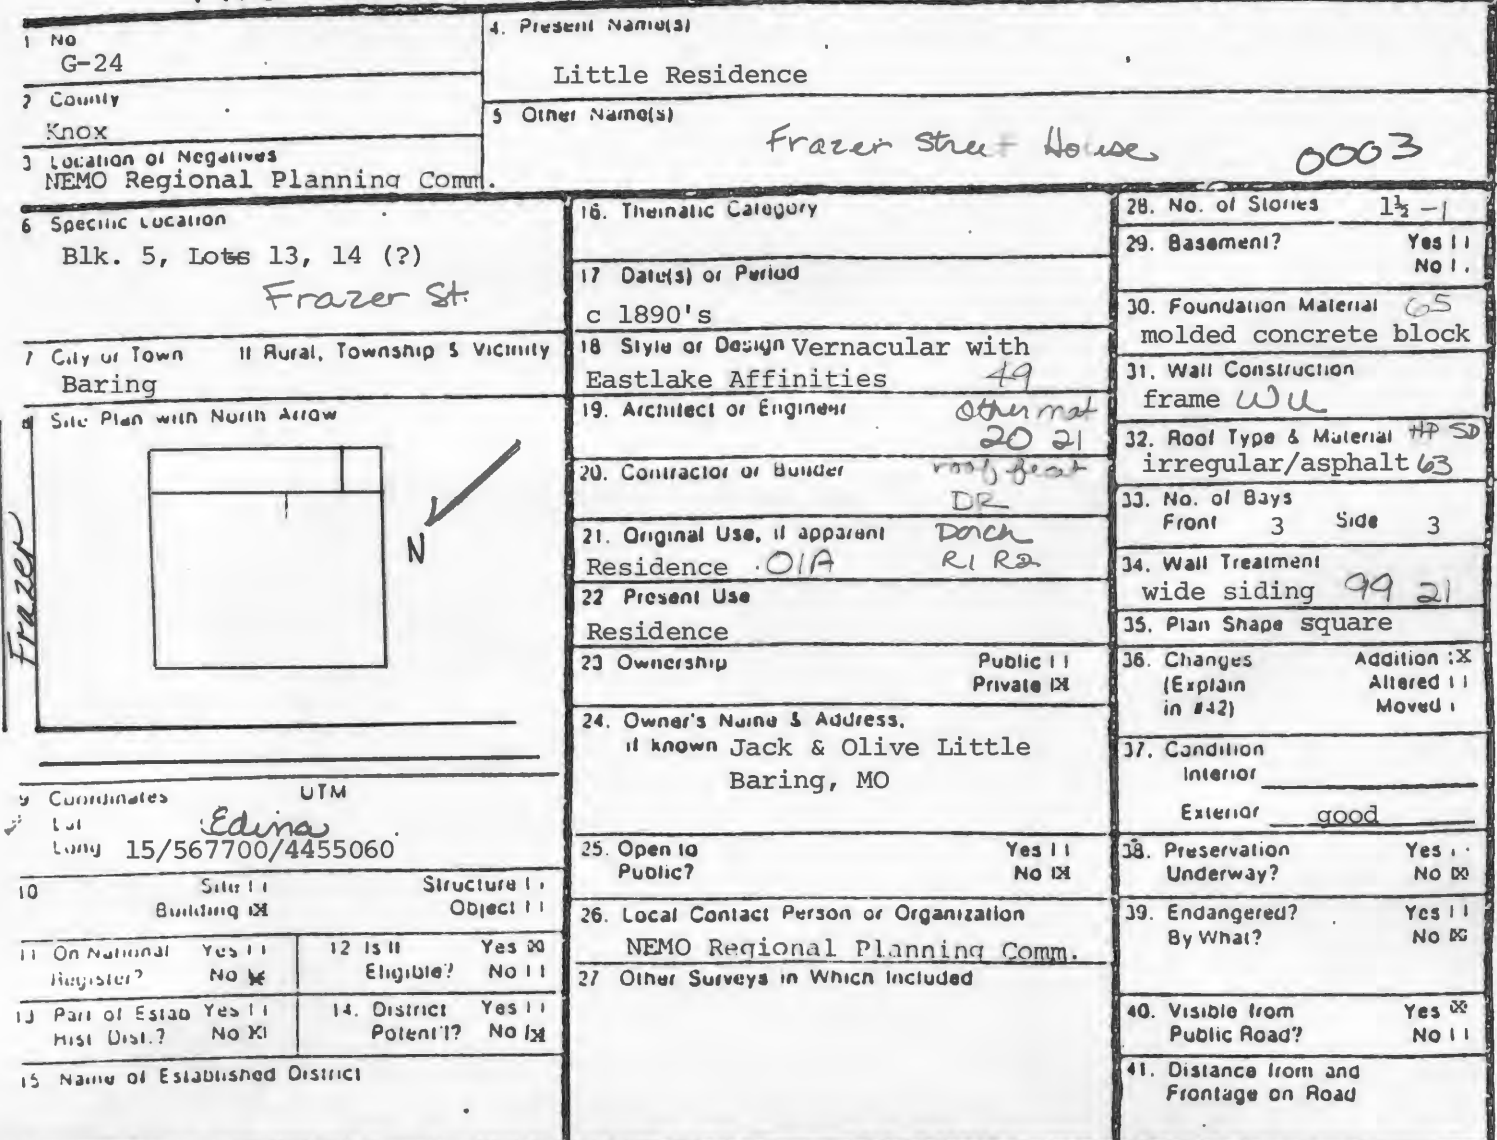 1 No
G-24
2 County
Knox
3 Location of Negatives
NEMO Regional Planning Comm.
4. Present Name(s)
Little Residence
5 Other Name(s)
Frazer Street House 0003
6 Specific Location
Blk. 5, Lots 13, 14 (?)
Frazer St.
7 City or Town If Rural, Township & Vicinity
Baring
8 Site Plan with North Arrow
N
Frazer
9 Coordinates UTM
Lat Edina
Long 15/567700/4455060
10 Site Structure
Building X Object
11 On National Yes
Register? No X
12 Is It Yes X
Eligible? No
13 Part of Estab Yes
Hist Dist.? No X
14. District Yes
Potent'l? No X
15 Name of Established District
16. Thematic Category
17 Date(s) or Period
c 1890's
18 Style or Design Vernacular with
Eastlake Affinities 49
19. Architect or Engineer Other mat
20 21
20. Contractor or Builder roof feat
DR
21. Original Use, if apparent Porch
Residence 01A R1 R2
22 Present Use
Residence
23 Ownership Public
Private X
24. Owner's Name & Address,
if known Jack & Olive Little
Baring, MO
25. Open to Yes
Public? No X
26. Local Contact Person or Organization
NEMO Regional Planning Comm.
27 Other Surveys in Which Included
28. No. of Stories 1½ -1
29. Basement? Yes
No
30. Foundation Material 65
molded concrete block
31. Wall Construction
frame WU
32. Roof Type & Material HP SD
irregular/asphalt 63
33. No. of Bays
Front 3 Side 3
34. Wall Treatment
wide siding 99 21
35. Plan Shape square
36. Changes Addition X
(Explain Altered
in #42) Moved
37. Condition
Interior
Exterior good
38. Preservation Yes
Underway? No X
39. Endangered? Yes
By What? No X
40. Visible from Yes X
Public Road? No
41. Distance from and
Frontage on Road